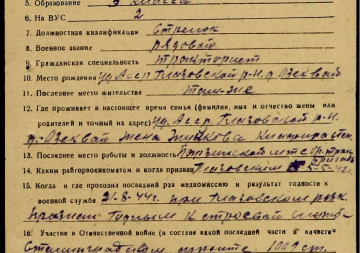 5. Образование 3 класса
6. На ВУС 2
7. Должностная квалификация Стрелок
8. Военное звание рядовой
9. Гражданская специальность тракторист
10. Место рождения Уд Асср Глазовской р-н. д. Озеквай
11. Последнее место жительства там-же
12. Где проживает в настоящее время семья (фамилия, имя и отчество жены или
родителей и точный их адрес) Уд Асср Глазовской р-н
д. Озеквай жена
13. Последнее место работы и должность мтс
14. Каким райгорвоенкоматом и когда призван Глазовским
15. Когда и где проходил раз медкомиссию и результат годности к
военной службе 21.8-44г. при Глазовском рвк
признан годным к строевой службе
16. Участие в Отечественной войне (в составе какой последней части в качестве
Сталинградском фронте